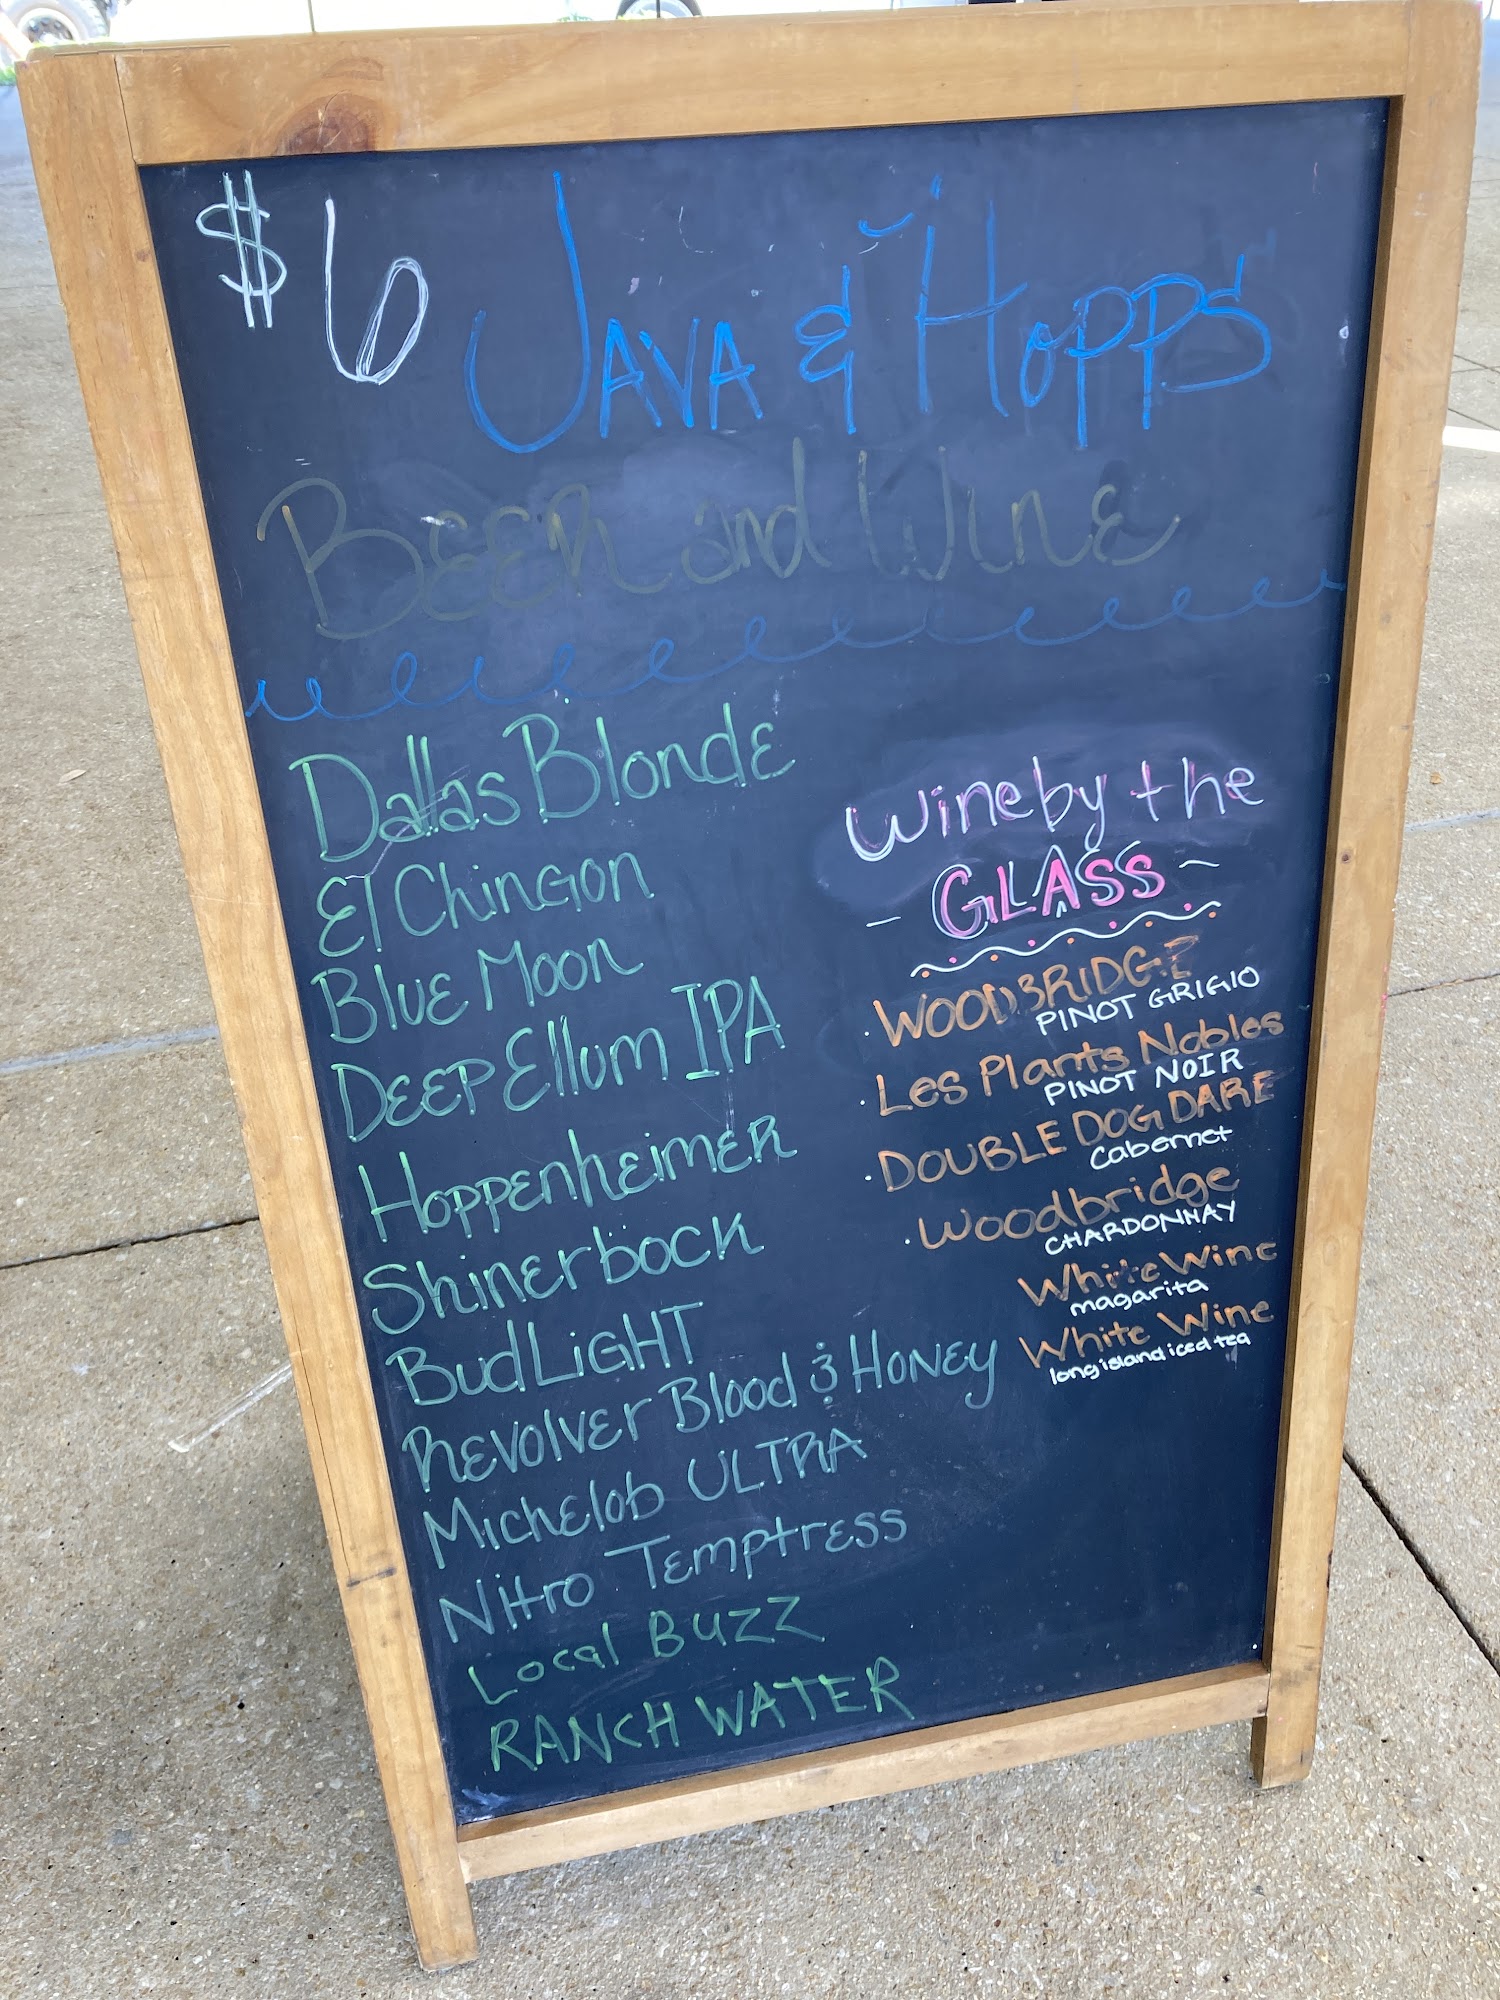 $6 JAVA & HOPPS
BEER and WINE
Dallas Blonde
El Chingon
Blue Moon
DEEP Ellum IPA
Hoppenheimer
Shinerbock
Bud LiGHT
REVOLVER Blood & HONEY
Michelob ULTRA
Nitro Temptress
Local BUZZ
RANCH WATER
Wine by the
- GLASS -
. WOODBRIDGE
PINOT GRIGIO
. Les Plants Nobles
PINOT NOIR
. DOUBLE DOG DARE
Cabernet
. Woodbridge
CHARDONNAY
White Wine
magarita
White Wine
long island iced tea